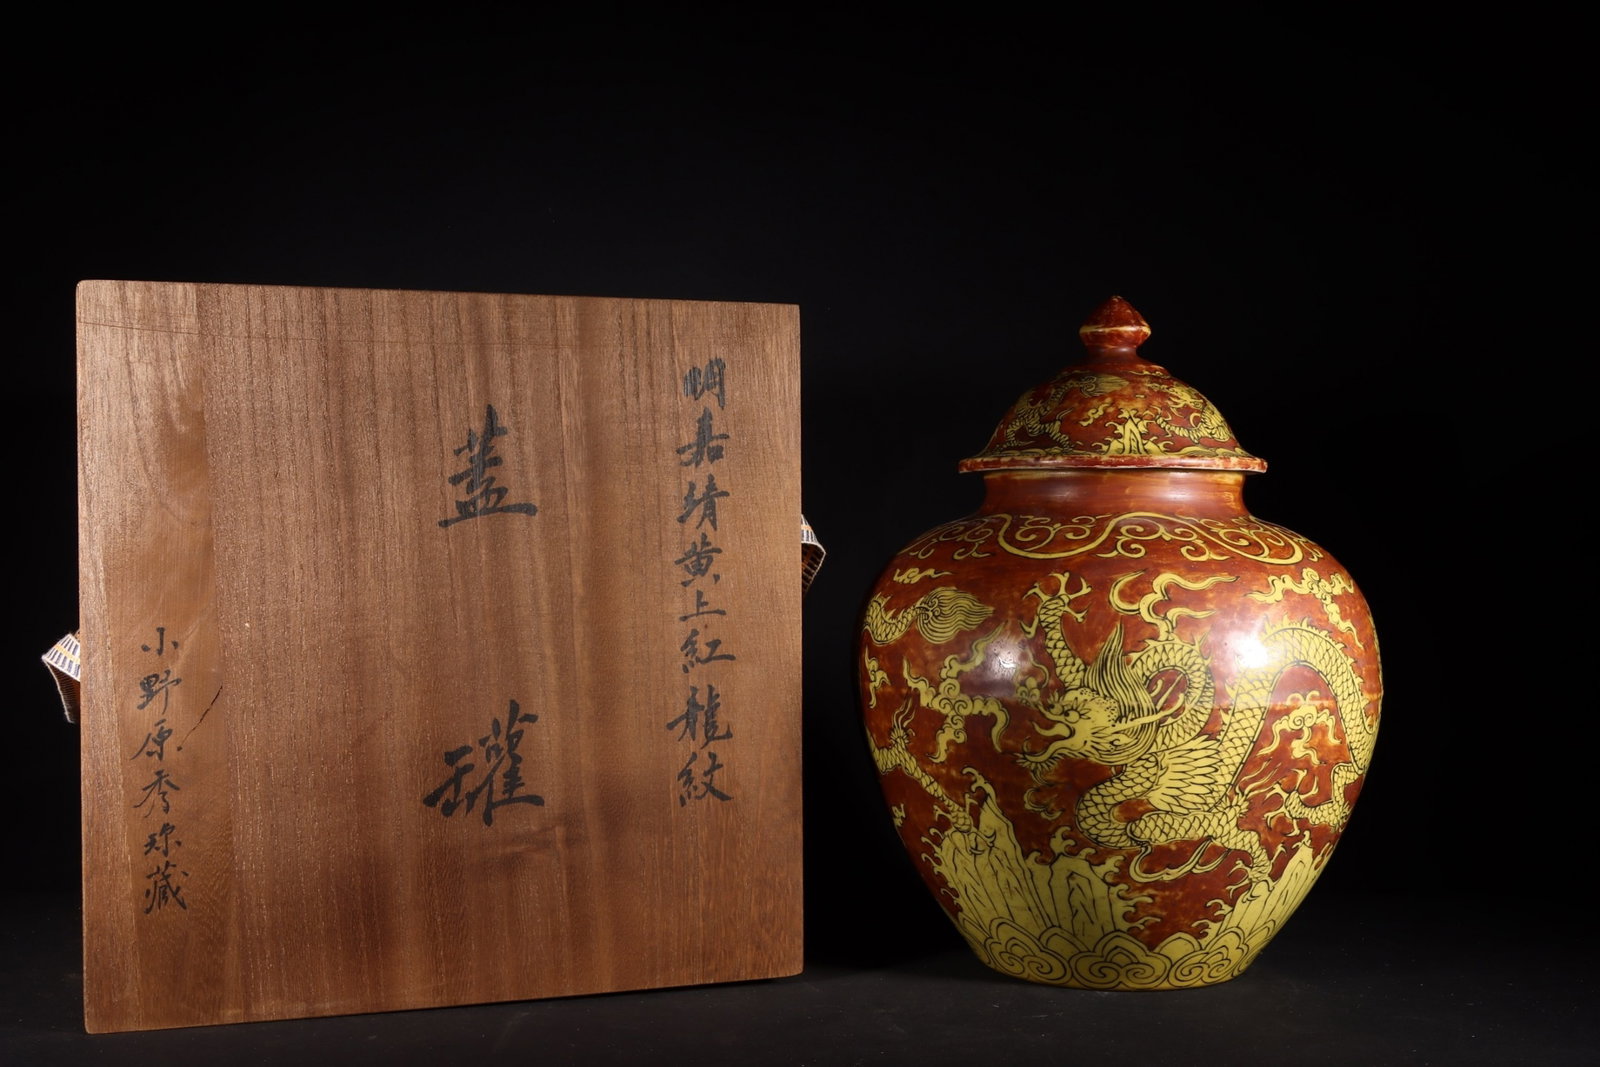 明嘉靖黄上紅龍紋
蓋罐
小野原秀珎藏